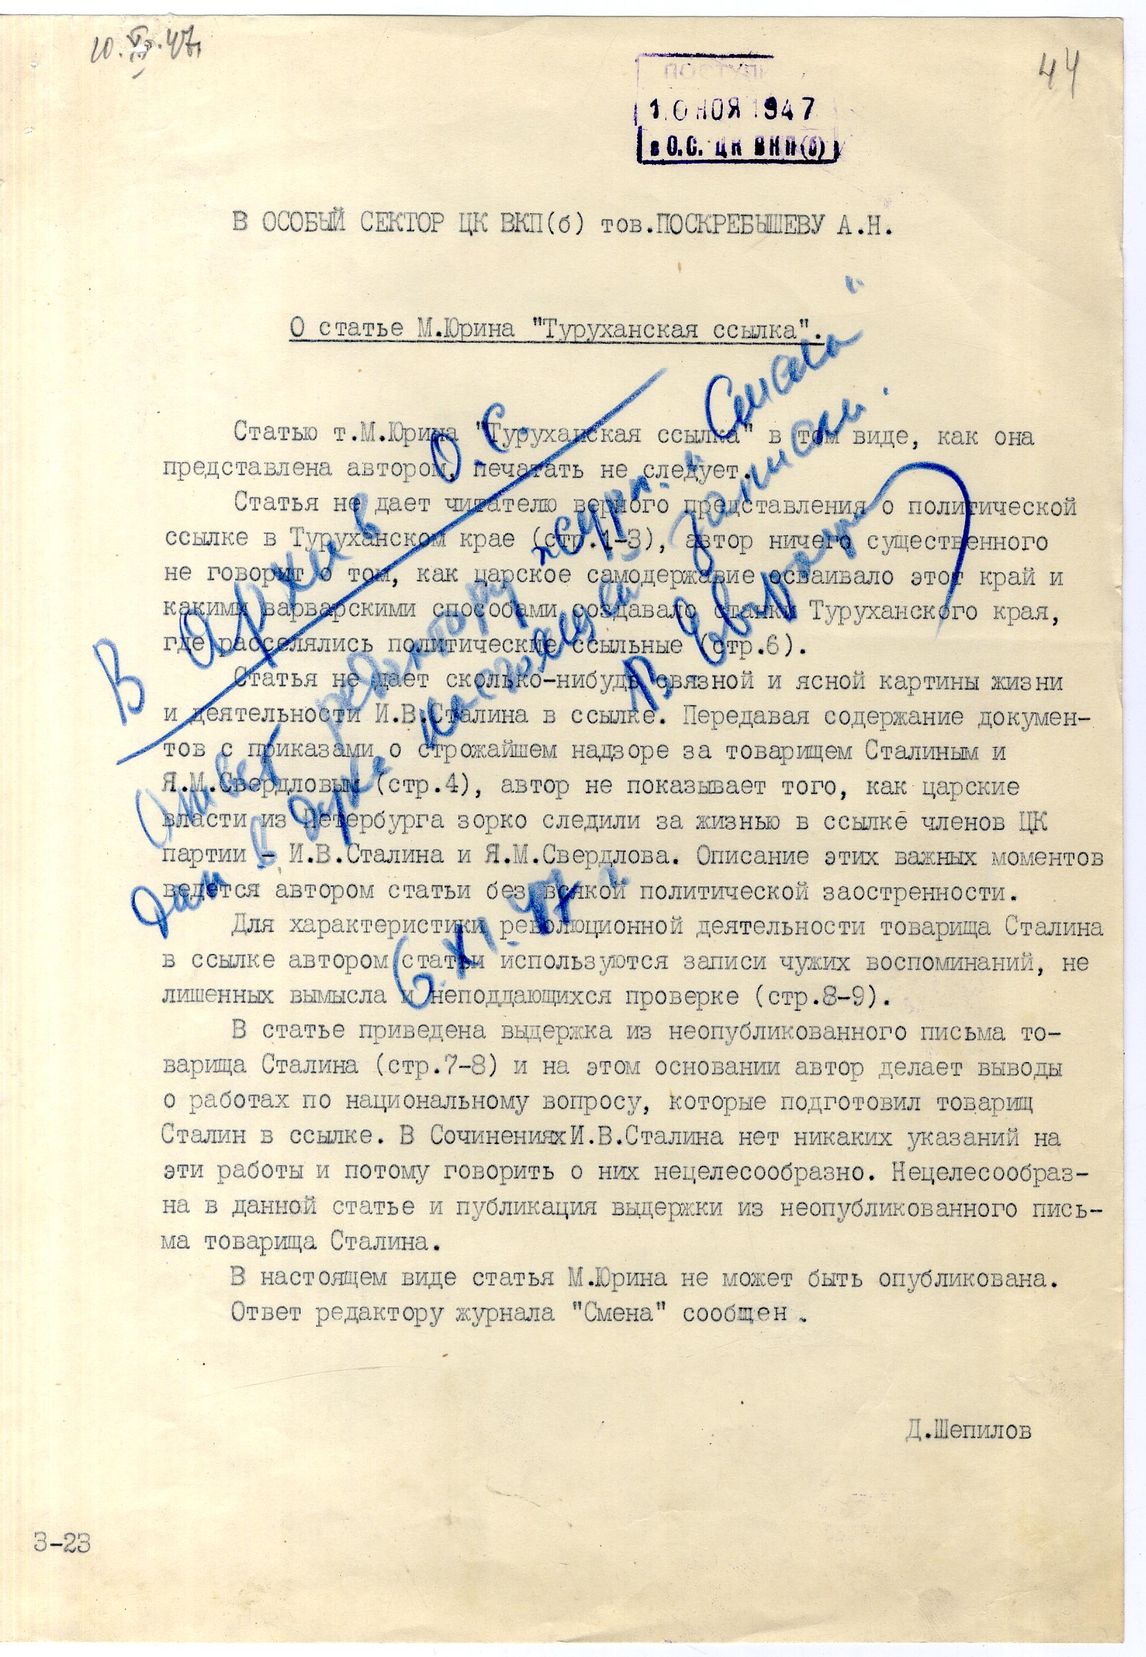 10.XI.47.
44
ПОСТУП
10 НОЯ 1947
в О.С. ЦК ВКП(б)
В ОСОБЫЙ СЕКТОР ЦК ВКП(б) тов.ПОСКРЕБЫШЕВУ А.Н.
О статье М.Юрина "Туруханская ссылка".
Статью т.М.Юрина "Туруханская ссылка" в том виде, как она
представлена автором, печатать не следует.
Статья не дает читателю верного представления о политической
ссылке в Туруханском крае (стр.1-3), автор ничего существенного
не говорит о том, как царское самодержавие осваивало этот край и
какими варварскими способами создавало станки Туруханского края,
где расселялись политические ссыльные (стр.6).
Статья не дает сколько-нибудь связной и ясной картины жизни
и деятельности И.В.Сталина в ссылке. Передавая содержание докумен-
тов с приказами о строжайшем надзоре за товарищем Сталиным и
Я.М.Свердловым (стр.4), автор не показывает того, как царские
власти из Петербурга зорко следили за жизнью в ссылке членов ЦК
партии - И.В.Сталина и Я.М.Свердлова. Описание этих важных моментов
ведется автором статьи без всякой политической заостренности.
Для характеристики революционной деятельности товарища Сталина
в ссылке автором статьи используются записи чужих воспоминаний, не
лишенных вымысла и неподдающихся проверке (стр.8-9).
В статье приведена выдержка из неопубликованного письма то-
варища Сталина (стр.7-8) и на этом основании автор делает выводы
о работах по национальному вопросу, которые подготовил товарищ
Сталин в ссылке. В Сочинениях И.В.Сталина нет никаких указаний на
эти работы и потому говорить о них нецелесообразно. Нецелесообраз-
на в данной статье и публикация выдержки из неопубликованного пись-
ма товарища Сталина.
В настоящем виде статья М.Юрина не может быть опубликована.
Ответ редактору журнала "Смена" сообщен.
Д.Шепилов
3-23
В архив О.С.
Ответ редактору журн. "Смена"
дан в духе настоящей записки.
6.XI.47 г.